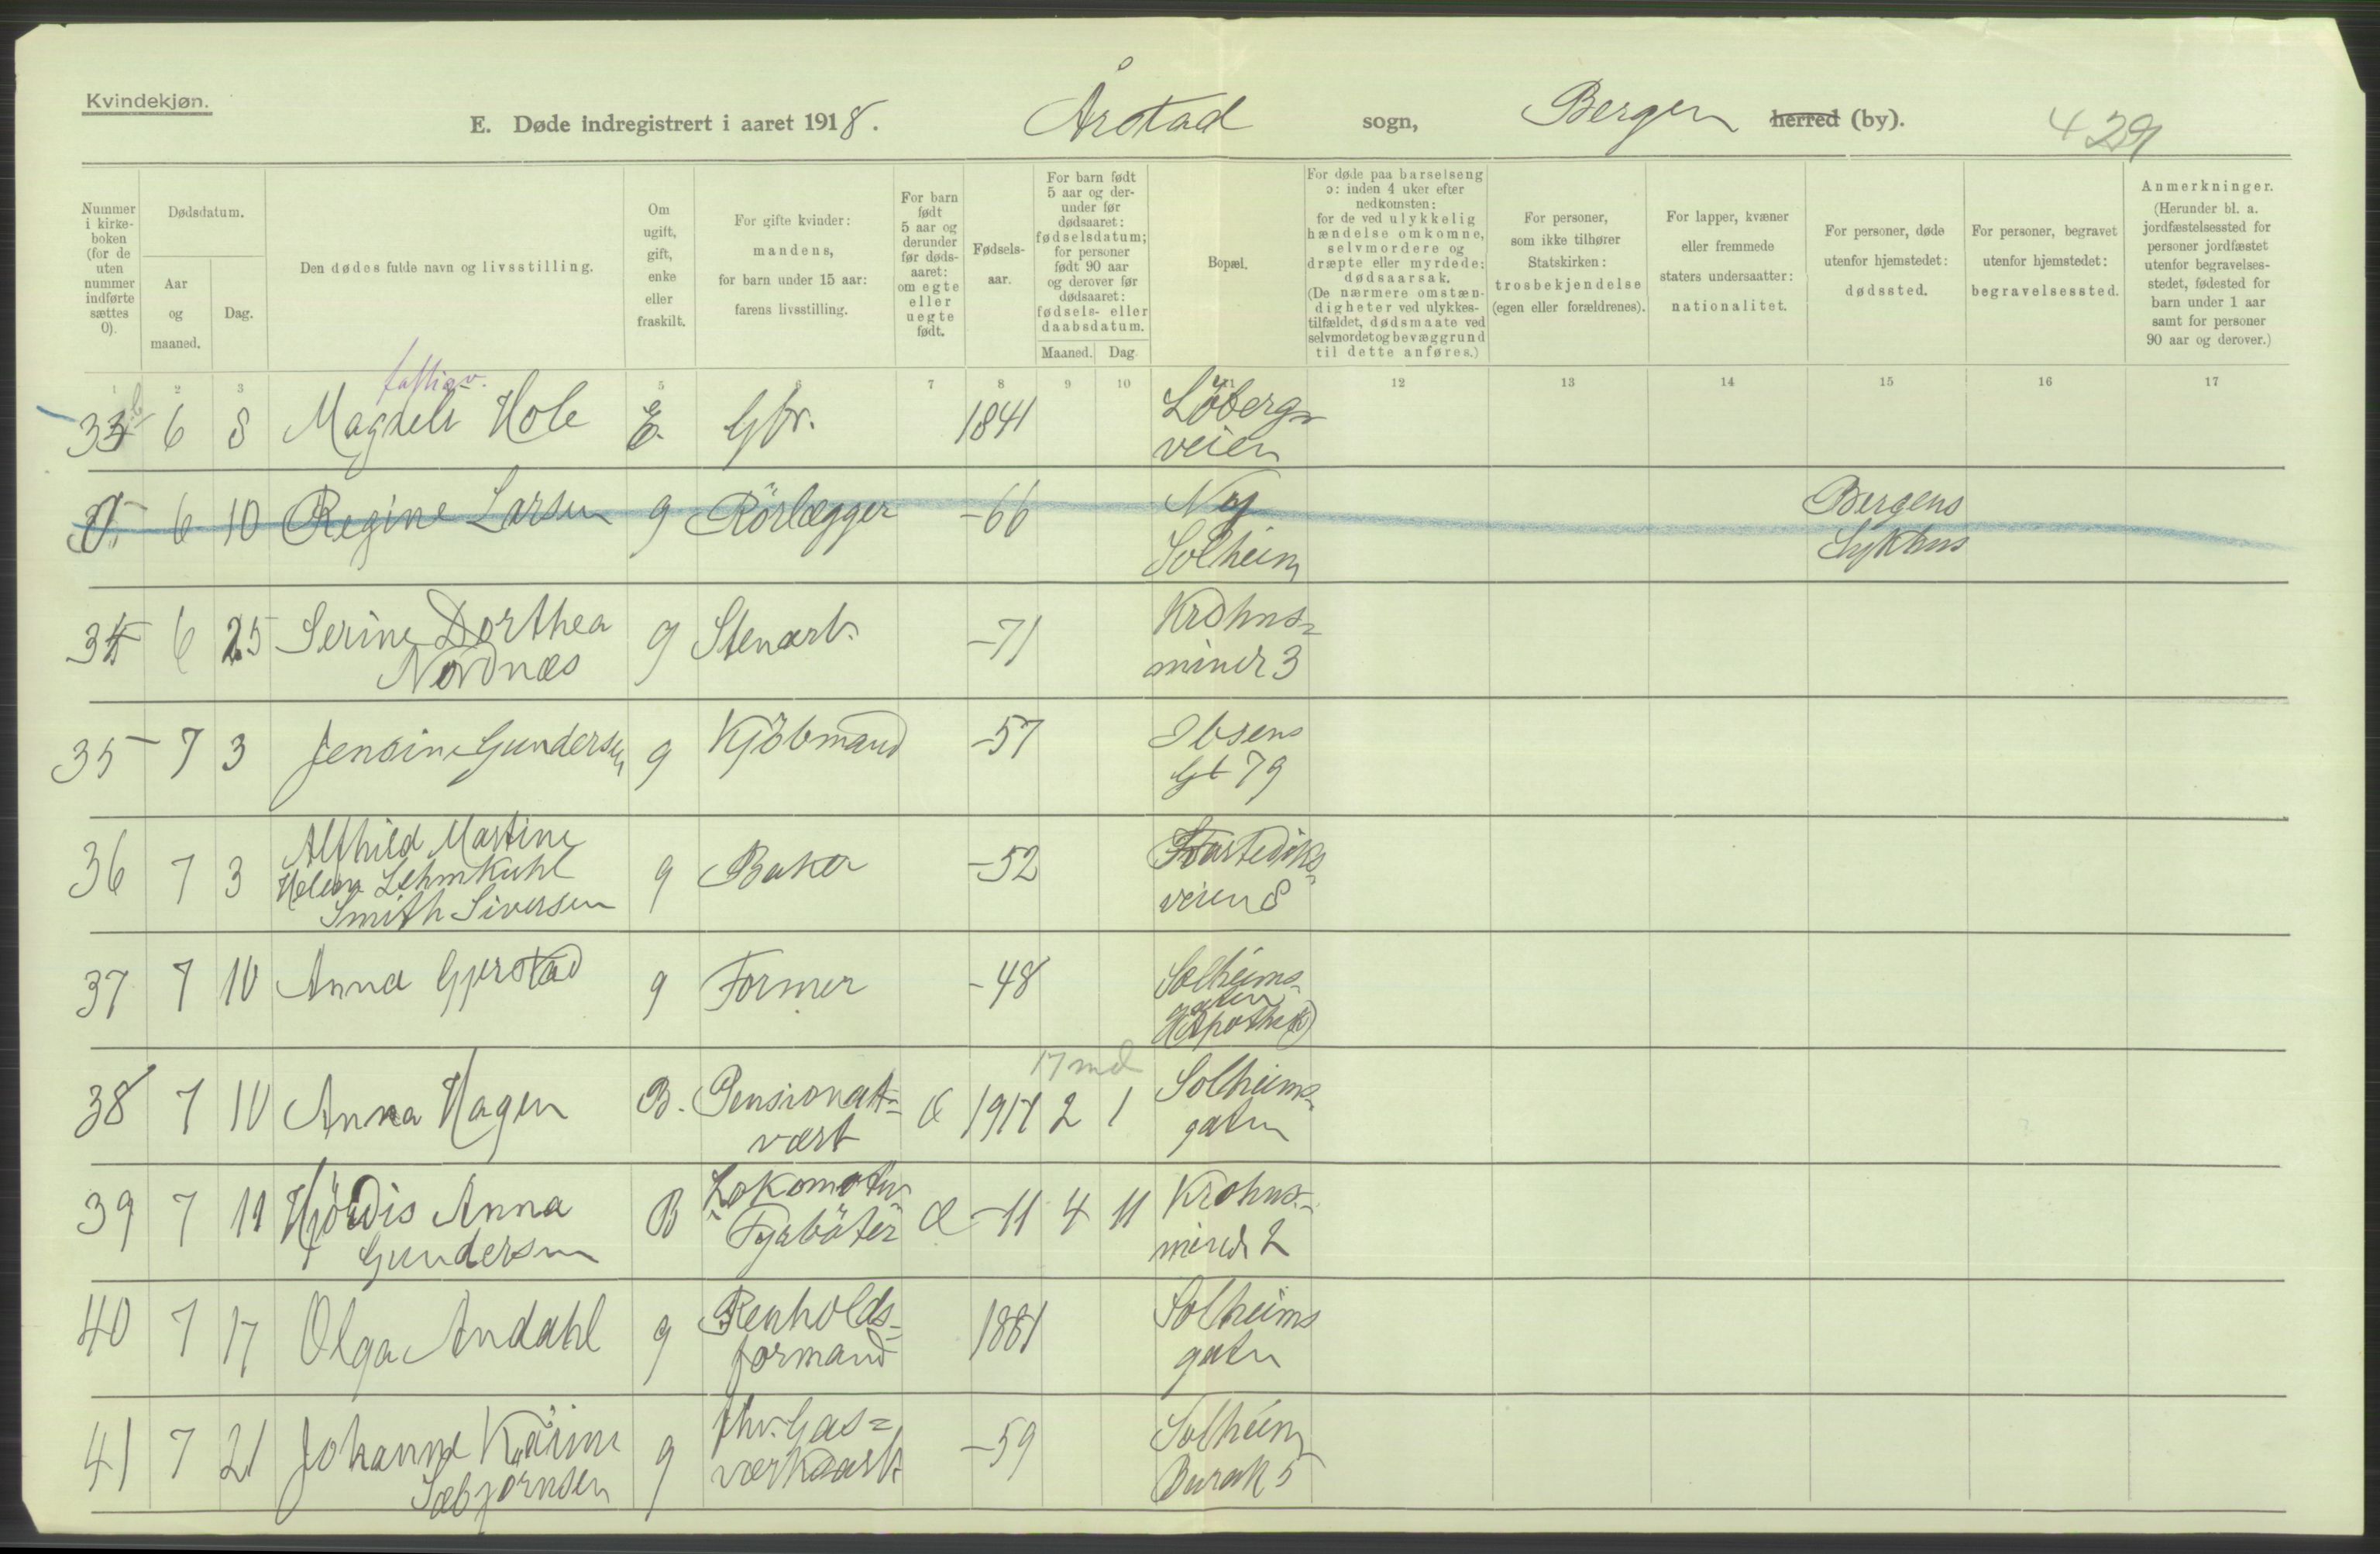 Kvindekjøn.
E. Døde indregistrert i aaret 1918. Årstad sogn, Bergen herred (by). 429
Nummer i kirke-boken (for de uten nummer indførte sættes 0).
Dødsdatum.
Aar og maaned.
Dag.
Den dødes fulde navn og livsstilling.
Om ugift, gift, enke eller fraskilt.
For gifte kvinder: mandens, for barn under 15 aar: farens livsstilling.
For barn født 5 aar og derunder før døds-aaret: om egte eller uegte født.
Fødsels-aar.
For barn født 5 aar og der-under før dødsaaret: fødselsdatum; for personer født 90 aar og derover før dødsaaret: fødsels- eller daabsdatum.
Maaned. Dag.
Bopæl.
For døde paa barselseng ɔ: inden 4 uker efter nedkomsten; for de ved ulykkelig hændelse omkomne, selvmordere og dræpte eller myrdede: dødsaarsak. (De nærmere omstæn-digheter ved ulykkes-tilfældet, dødsmaate ved selvmordet og bevæggrund til dette anføres.)
For personer, som ikke tilhører Statskirken: trosbekjendelse (egen eller forældrenes).
For lapper, kvæner eller fremmede staters undersaatter: nationalitet.
For personer, døde utenfor hjemstedet: dødssted.
For personer, begravet utenfor hjemstedet: begravelsessted.
Anmerkninger. (Herunder bl. a. jordfæstelsessted for personer jordfæstet utenfor begravelses-stedet, fødested for barn under 1 aar samt for personer 90 aar og derover.)
1 2 3 5 6 7 8 9 10 11 12 13 14 15 16 17
fattigv.
33 6 8 Magdeli Hole E. Gbr. 1841 Löbergs-
veien
6 10 Regine Larsen g Rörlægger -66 Ny Bergens
Solheim Sykehus
34 6 25 Serine Dorthea g Stenarb. -71 Krohns-
Nordnæs minde 3
35 7 3 Jensine Gundersen g Kjöbmand -57 Ibsens
Gt 79
36 7 3 Alfhild Martine
Helena Lehmkuhl g Baker -52
Smith Siversen veien 8
37 7 10 Anna Gjerstad g Former -48 Solheims-
gaten
(Apothek)
17 md
38 7 10 Anna Hagen B. Pensionat- Æ 1917 2 1 Solheims-
vært gaten
39 7 11 Hjördis Anna B Lokomotiv- Æ -11 4 11 Krohns-
Gundersen Fyrböter minde 2
40 7 17 Olga Andahl g Renholds- 1881 Solheims
formand gaten
41 7 21 Johanne Kaime g fhv. Gas= -59 Solheim
Sæbjörnsen verksarb. Barak 5